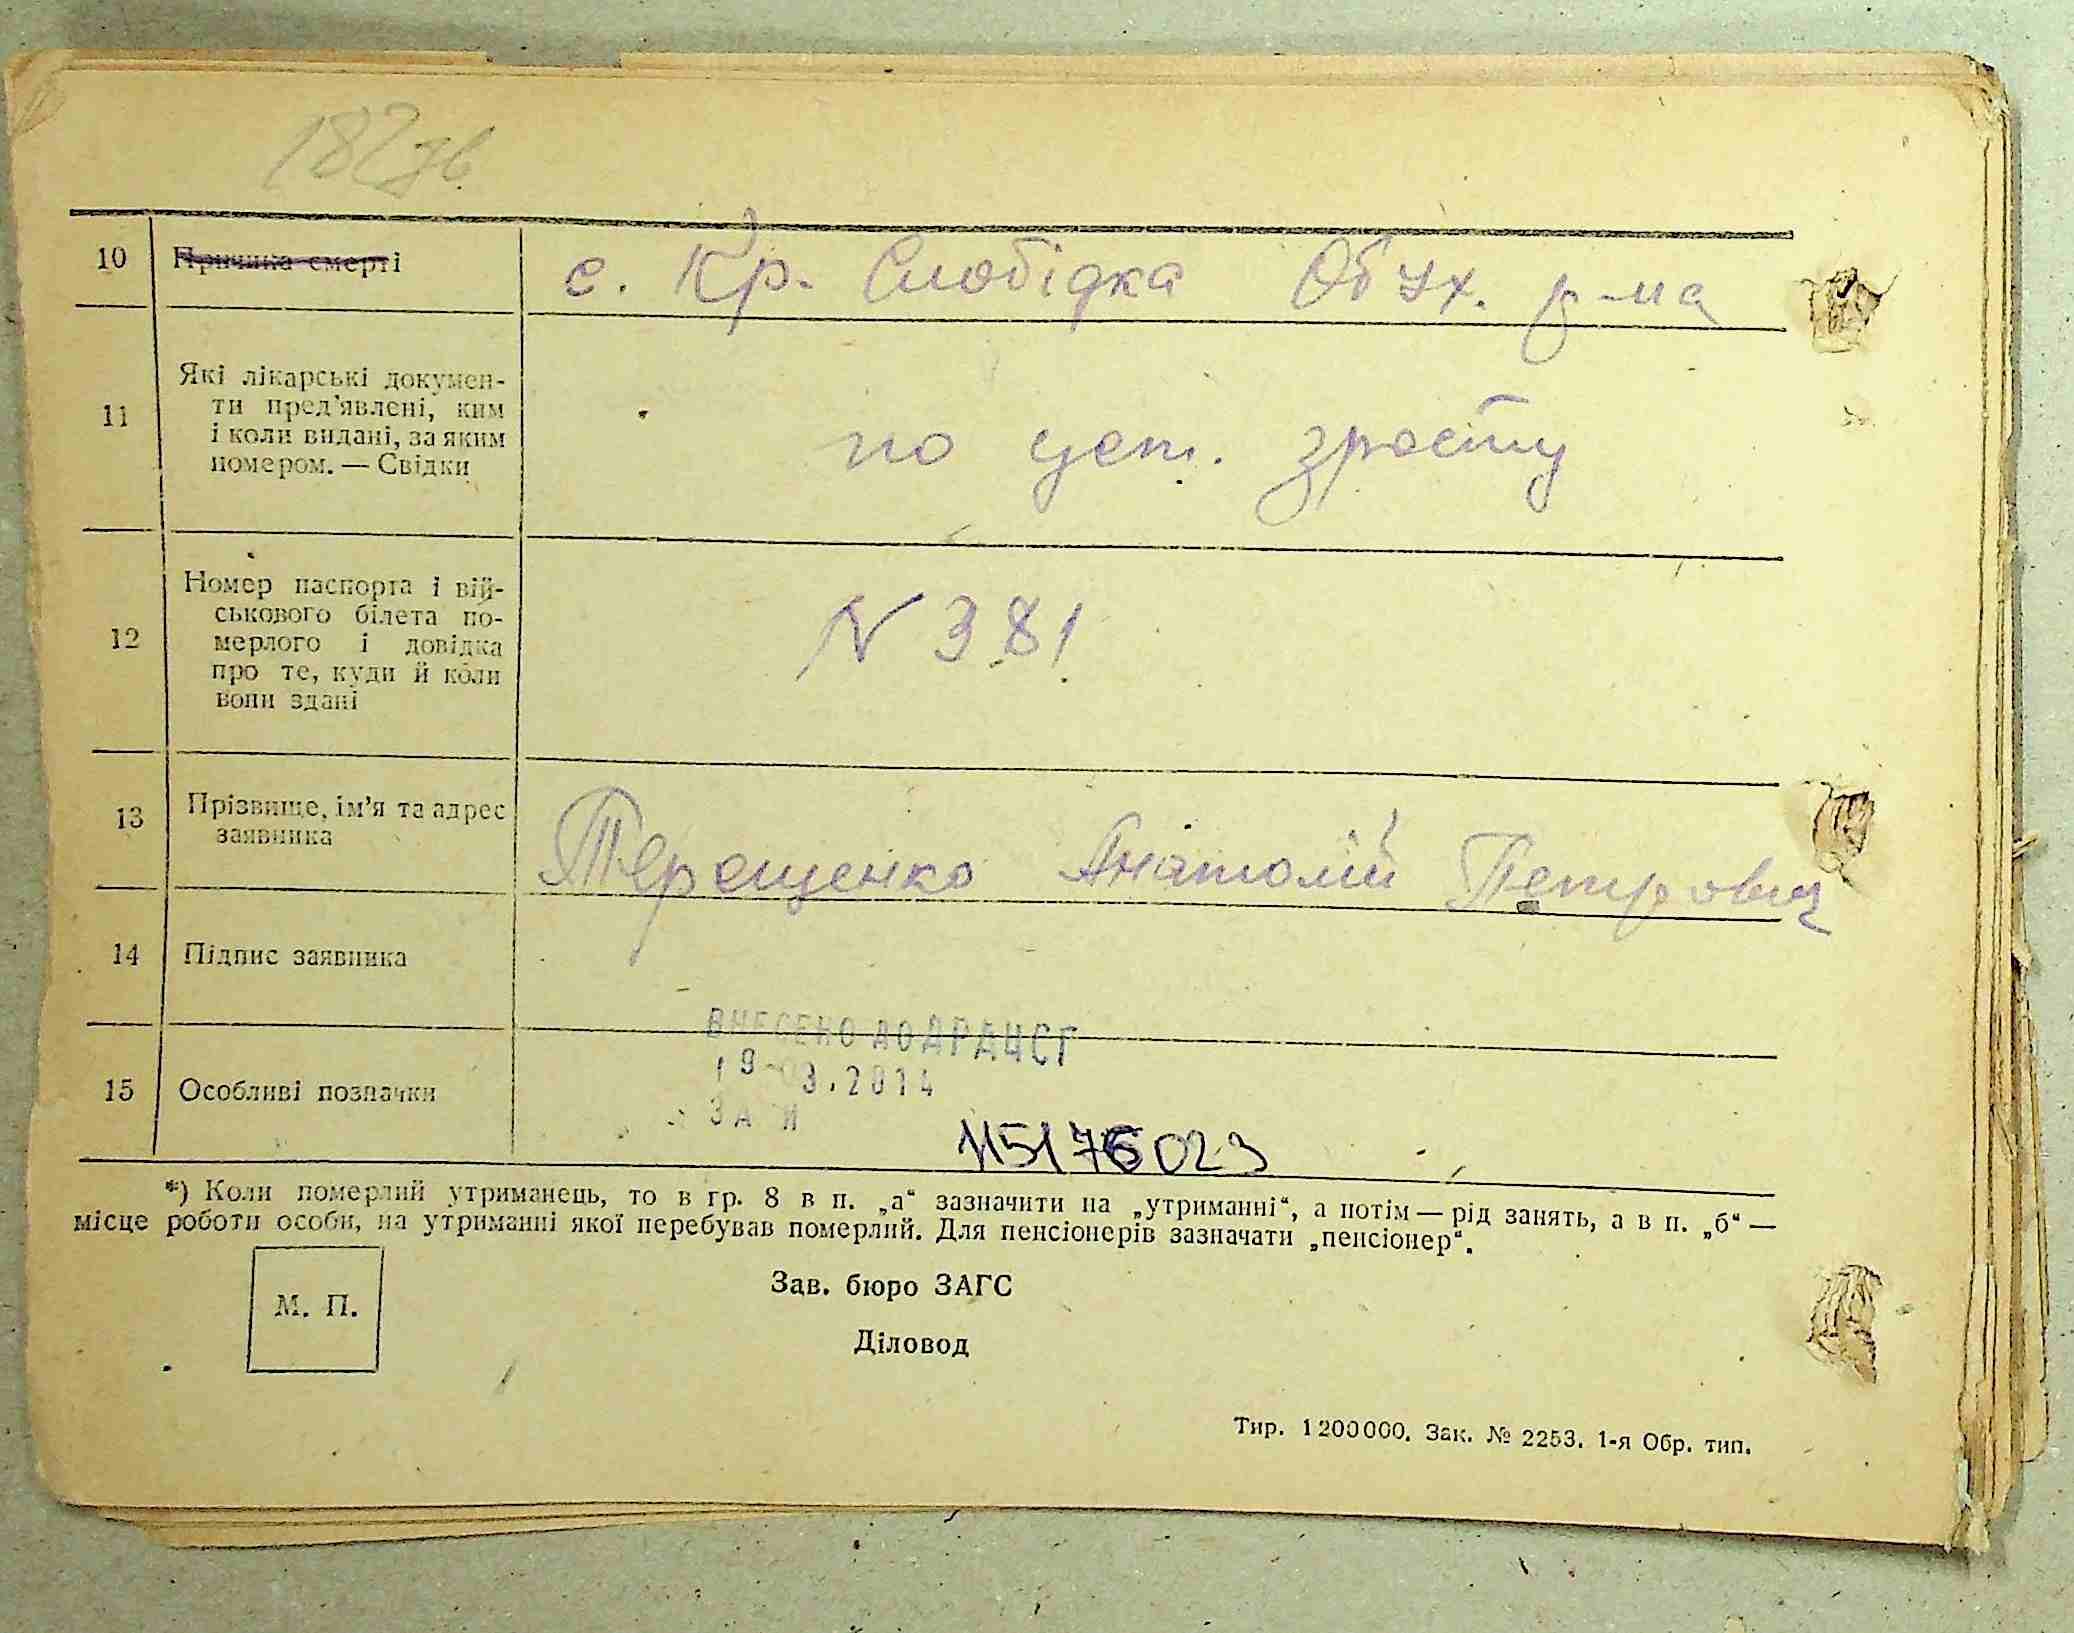 182зв.
10 Причина смерті с. Кр. Слобідка Обух. р-на
Які лікарські докумен-
ти пред'явлені, ким
11 і коли видані, за яким по уст. зросту
номером. — Свідки
Номер паспорта і вій-
ськового білета по-
12 мерлого і довідка N 381
про те, куди й коли
вони здані
13 Прізвище, ім'я та адрес Терещенко Анатолій Петрович
заявника
14 Підпис заявника
ВНЕСЕНО ДО ДРАЦСГ
19 03.2014
15 Особливі позначки
ЗА И
115176023
*) Коли померлий утриманець, то в гр. 8 в п. „а“ зазначити на „утриманні“, а потім — рід занять, а в п. „б“ —
місце роботи особи, на утриманні якої перебував померлий. Для пенсіонерів зазначати „пенсіонер“.
М. П.
Зав. бюро ЗАГС
Діловод
Тир. 1200000. Зак. № 2253. 1-я Обр. тип.